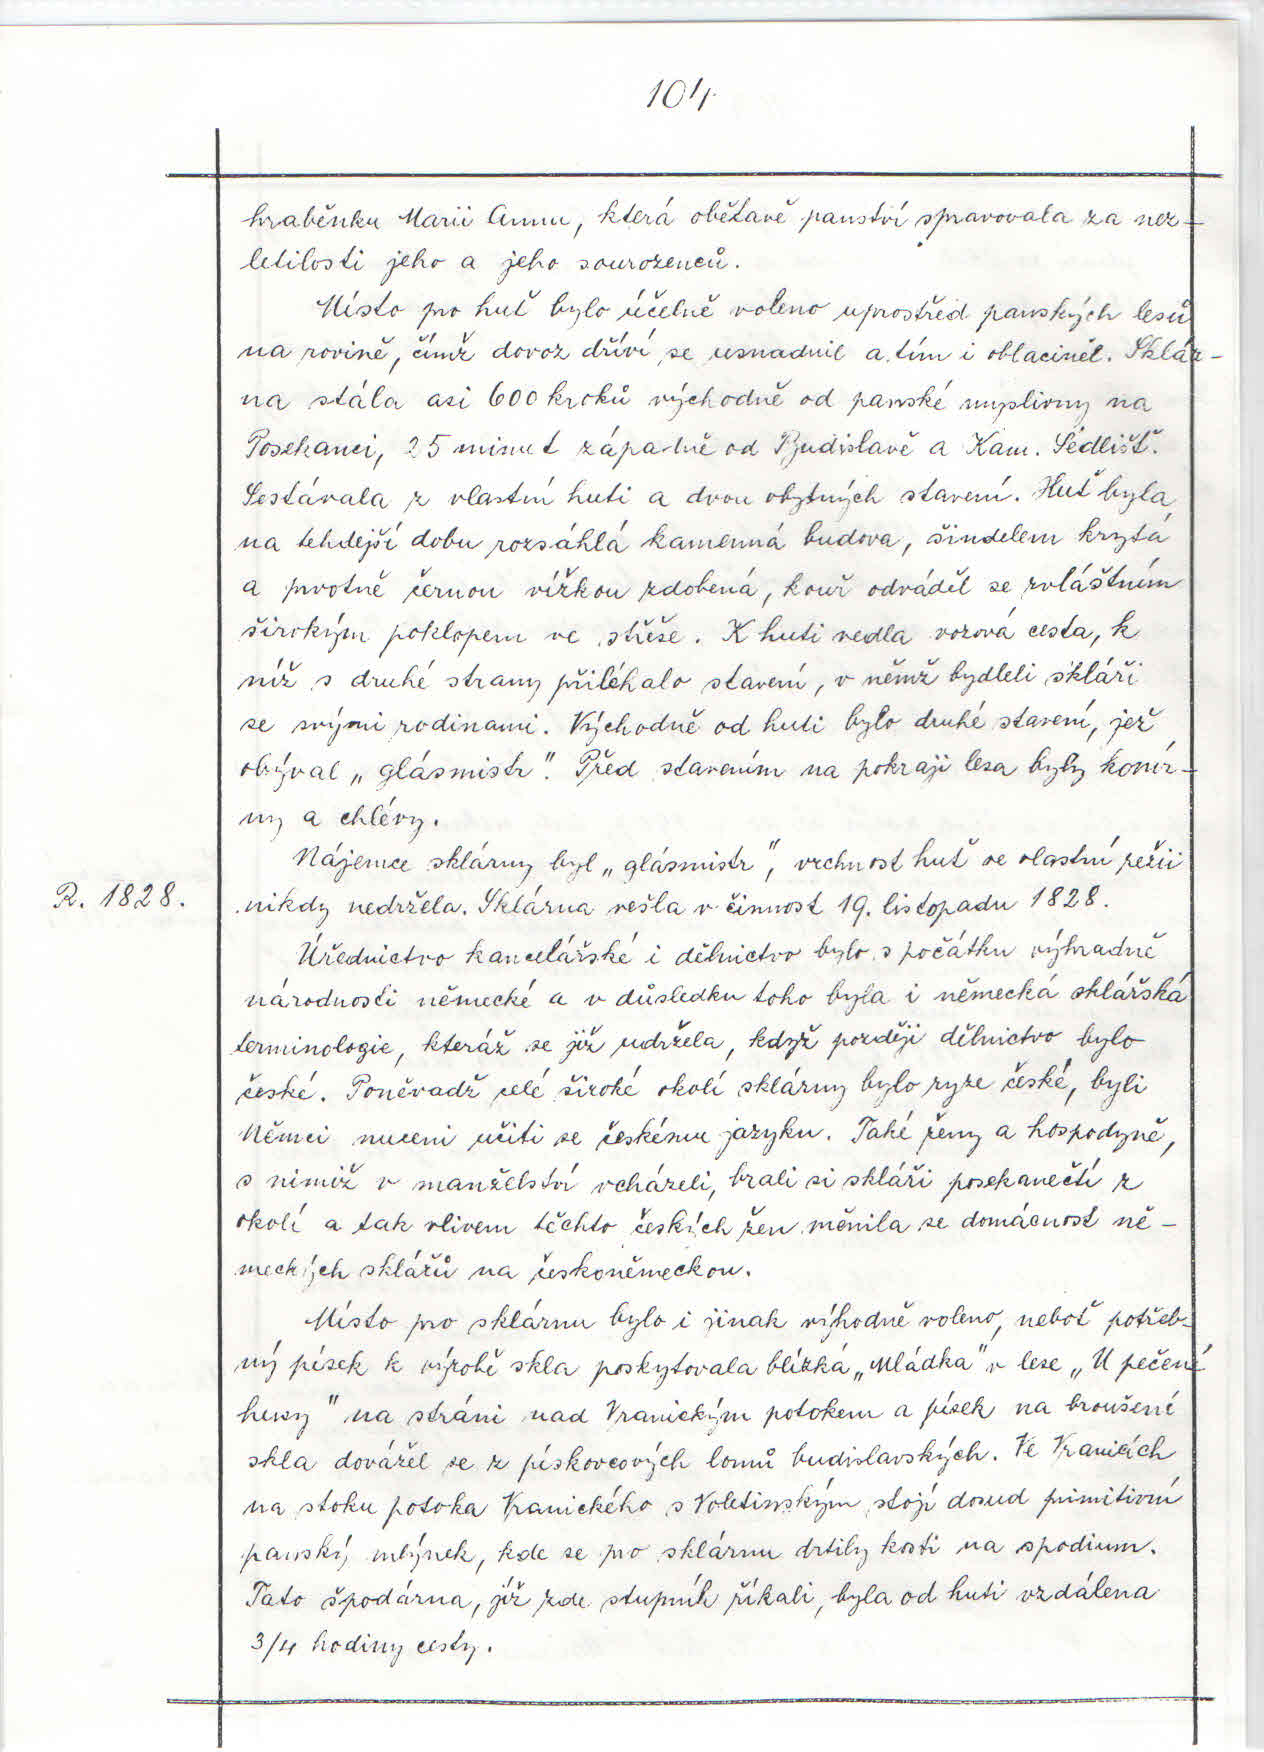 104
hraběnku Marii Annu, která obětavě panství spravovala za nez-
letilosti jeho a jeho sourozenců.
Místo pro huť bylo účelně voleno uprostřed panských lesů
na rovině, čímž dovoz dříví se usnadnil a tím i oblaciněl. Sklár-
na stála asi 600 kroků východně od panské myslivny na
Posekanci, 25 minut západně od Budislavě a Kam. Sedlišť.
Sestávala z vlastní huti a dvou obytných stavení. Huť byla
na tehdejší dobu rozsáhlá kamenná budova, šindelem krytá
a prvotně černou vížkou zdobená, kouř odváděl se zvláštním
širokým poklopem ve střeše. K huti vedla vozová cesta, k
níž s druhé strany přiléhalo stavení, v němž bydleli skláři
se svými rodinami. Východně od huti bylo druhé stavení, jež
obýval „glásmistr". Před stavením na pokraji lesa byly konír-
ny a chlévy.
Nájemce sklárny byl „glásmistr", vrchnost huť ve vlastní režii
R. 1828. nikdy nedržela. Sklárna vešla v činnost 19. listopadu 1828.
Úřednictvo kancelářské i dělnictvo bylo s počátku výhradně
národnosti německé a v důsledku toho byla i německá sklářská
terminologie, kteráž se již udržela, když později dělnictvo bylo
české. Poněvadž celé široké okolí sklárny bylo ryze české, byli
Němci nuceni učiti se českému jazyku. Také ženy a hospodyně,
s nimiž v manželství vcházeli, brali si skláři posekanečtí z
okolí a tak vlivem těchto českých žen měnila se domácnost ně-
meckých sklářů na českoněmeckou.
Místo pro sklárnu bylo i jinak výhodně voleno, neboť potřeb-
ný písek k výrobě skla poskytovala blízká „Mládka" v lese „U pečené
husy" na stráni nad Vranickým potokem a písek na broušení
skla dovážel se z pískovcových lomů budislavských. Ve Vranicích
na stoku potoka Vranického s Voletínským stojí dosud primitivní
panský mlýnek, kde se pro sklárnu drtily kosti na spodium.
Tato špodárna, jíž zde stupník říkali, byla od huti vzdálena
3/4 hodiny cesty.